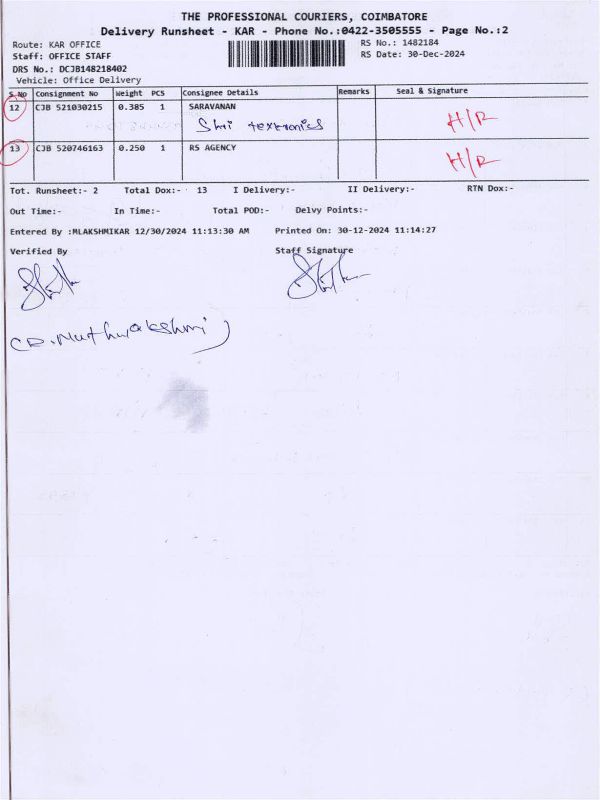 THE PROFESSIONAL COURIERS, COIMBATORE
Delivery Runsheet - KAR - Phone No.:0422-3505555 - Page No.:2
Route: KAR OFFICE
RS No.: 1482184
Staff: OFFICE STAFF
RS Date: 30-Dec-2024
DRS No.: DCJB148218402
Vehicle: Office Delivery
S.No Consignment No Weight PCS Consignee Details Remarks Seal & Signature
12 CJB 521030215 0.385 1 SARAVANAN H/R
Shri textronics
13 CJB 520746163 0.250 1 RS AGENCY H/R
Tot. Runsheet:- 2 Total Dox:- 13 I Delivery:- II Delivery:- RTN Dox:-
Out Time:- In Time:- Total POD:- Delvy Points:-
Entered By :MLAKSHMIKAR 12/30/2024 11:13:30 AM Printed On: 30-12-2024 11:14:27
Verified By Staff Signature
(D. Muthulakshmi)